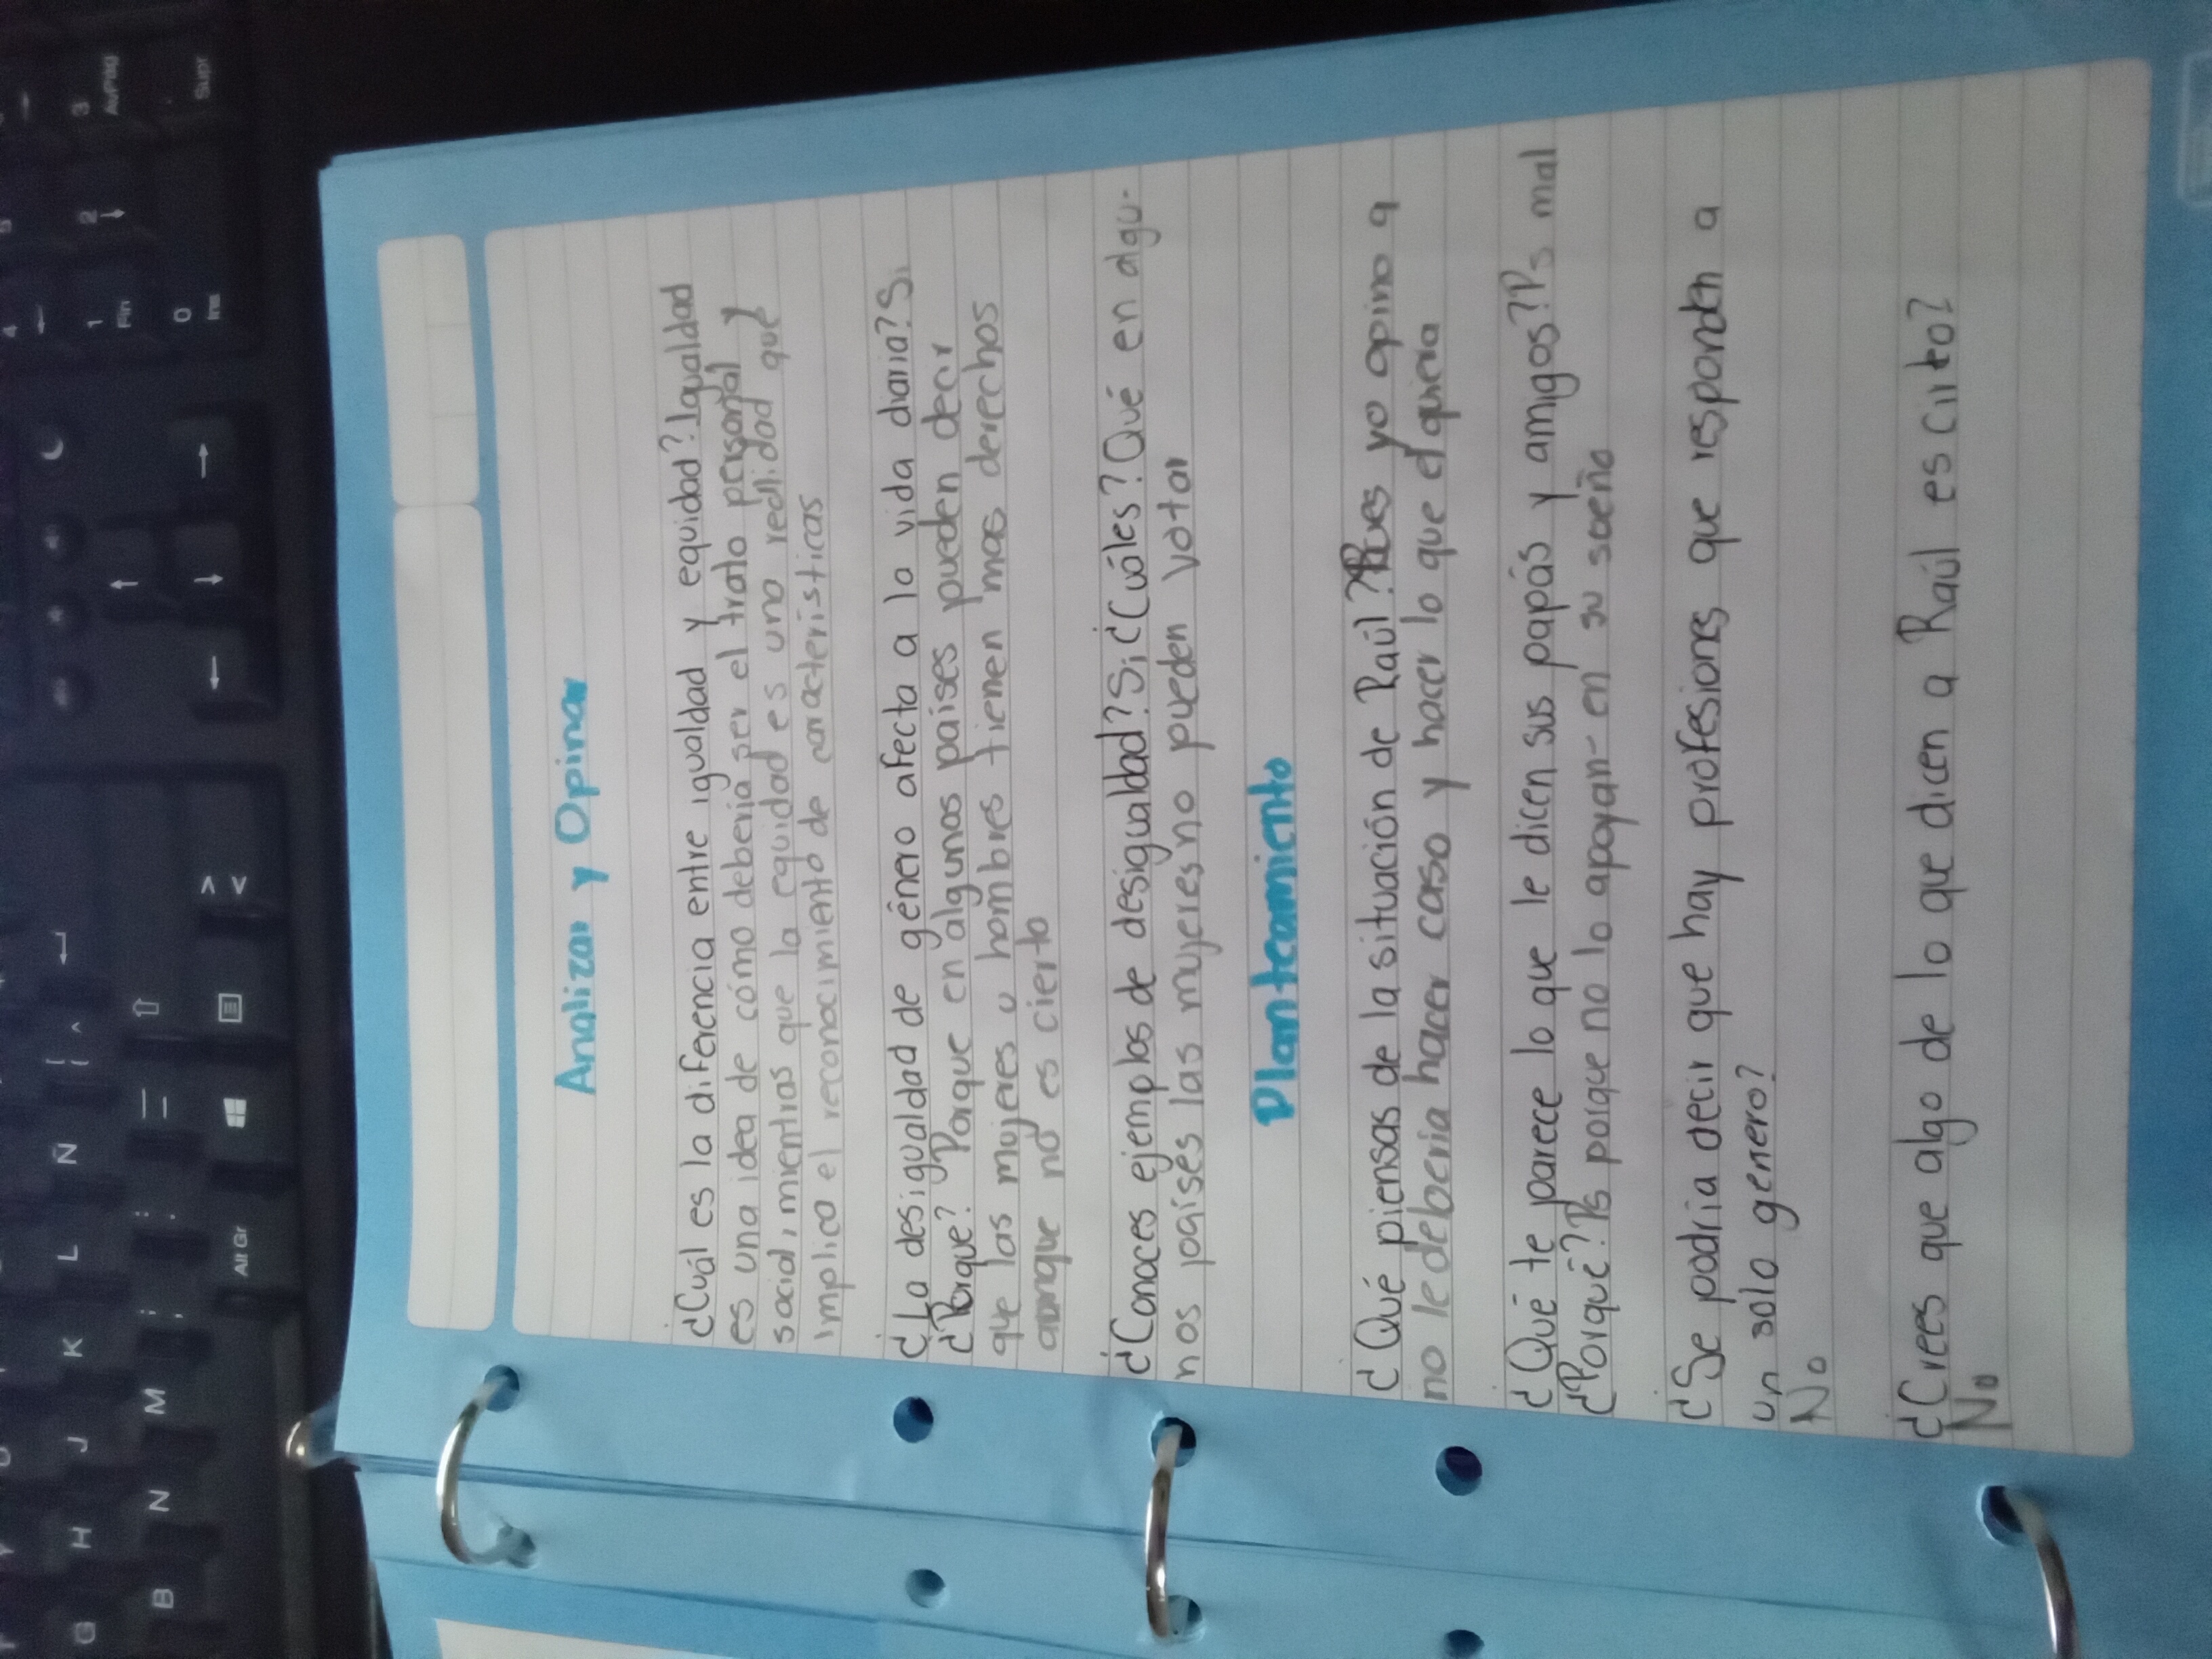 Analizar y Opinar
¿Cuál es la diferencia entre igualdad y equidad? Igualdad
es una idea de cómo debería ser el trato personal y
social, mientras que la equidad es una realidad que
implica el reconocimiento de características
¿La desigualdad de género afecta a la vida diaria? Si
¿Porque? Porque en algunas países pueden decir
que las mujeres u hombres tienen mas derechos
aunque no es cierto
¿Conoces ejemplos de desigualdad? Si ¿Cuáles? Qué en algu-
nos países las mujeres no pueden votar
Planteamiento
¿Qué piensas de la situación de Raúl? Pues yo opino q
no le deberia hacer caso y hacer lo que el quiera
¿Qué te parece lo que le dicen sus papás y amigos? Ps mal
¿Porqué? Ps porque no lo apoyan en su sueño
¿Se podría decir que hay profesiones que responden a
un solo género?
No
¿Crees que algo de lo que dicen a Raúl es cierto?
No
G H J K L Ñ
B N M ; , : .
[ { ^
Alt Gr
< >
0
Ins
1
Fin
2
3
AvPág
4
Supr